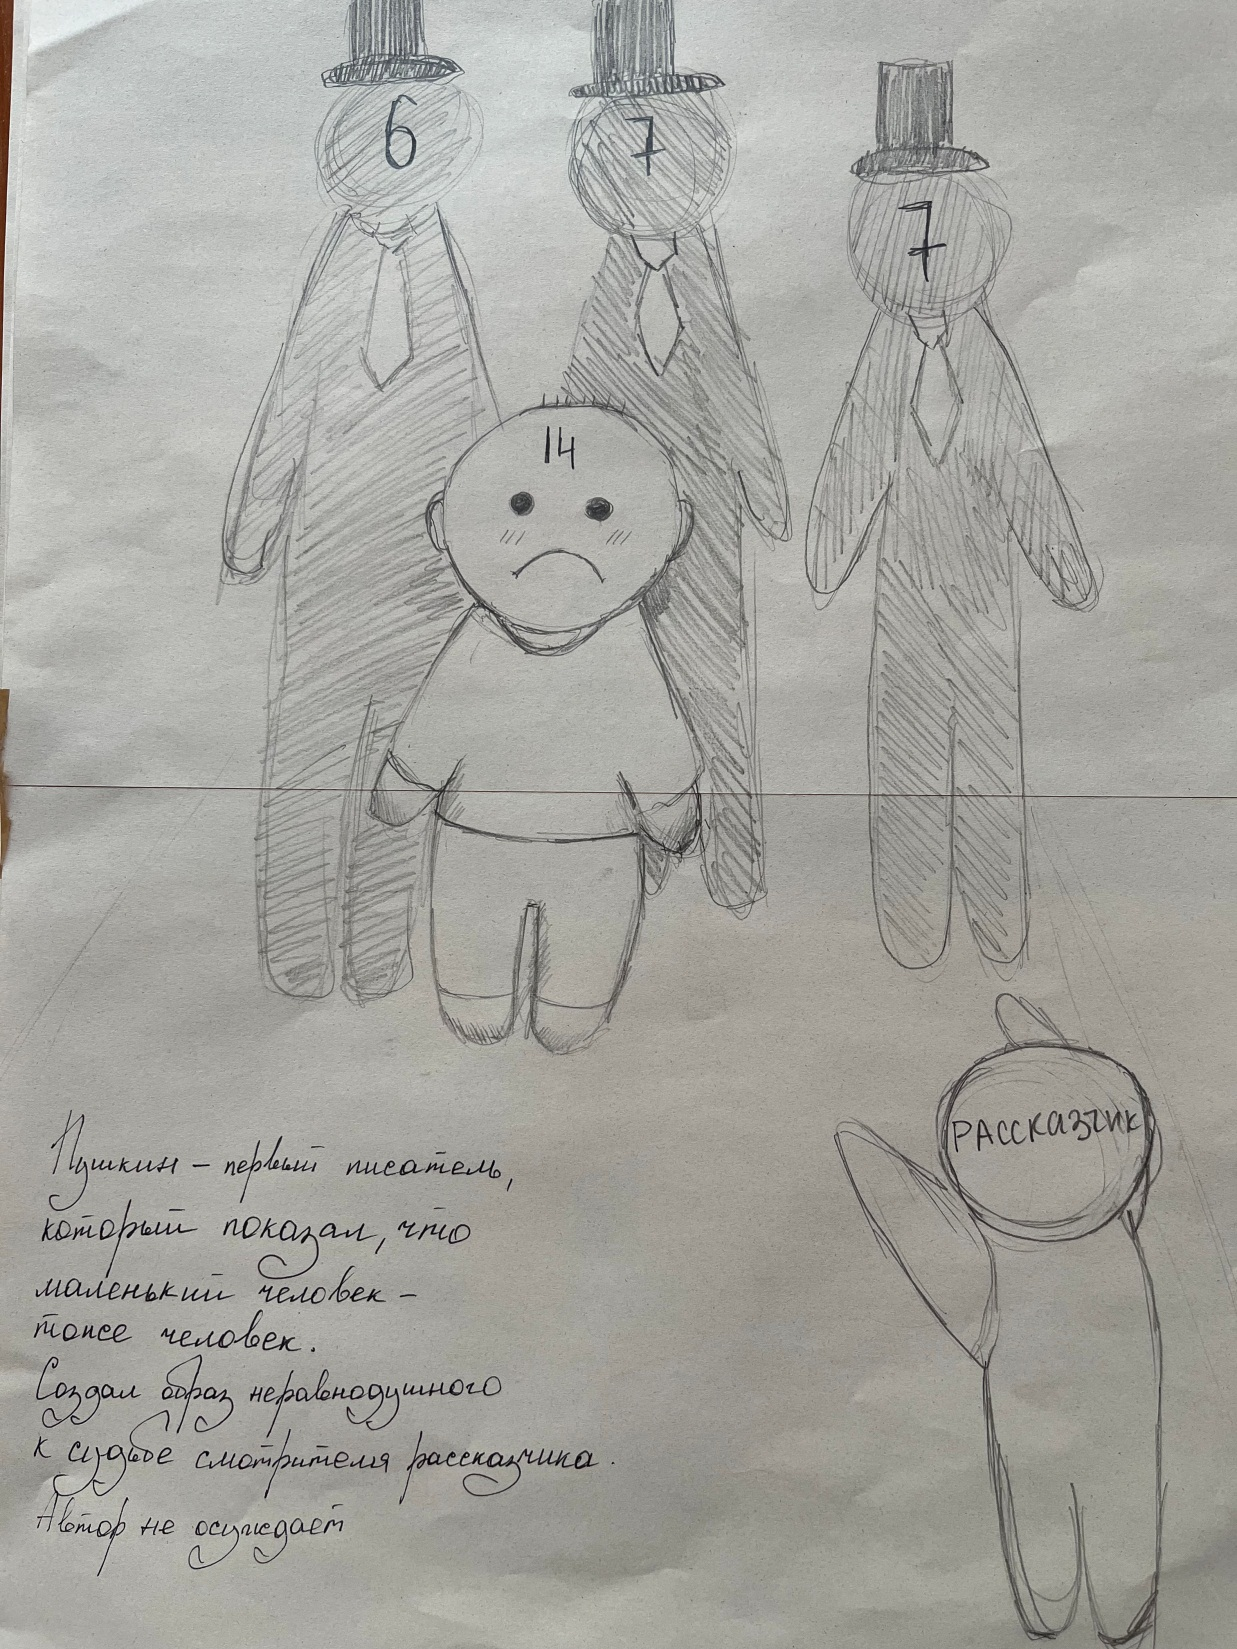 6
7
7
14
РАССКАЗЧИК
Пушкин – первый писатель,
который показал, что
маленький человек –
тоже человек.
Создал образ неравнодушного
к судьбе смотрителя рассказчика.
Автор не осуждает